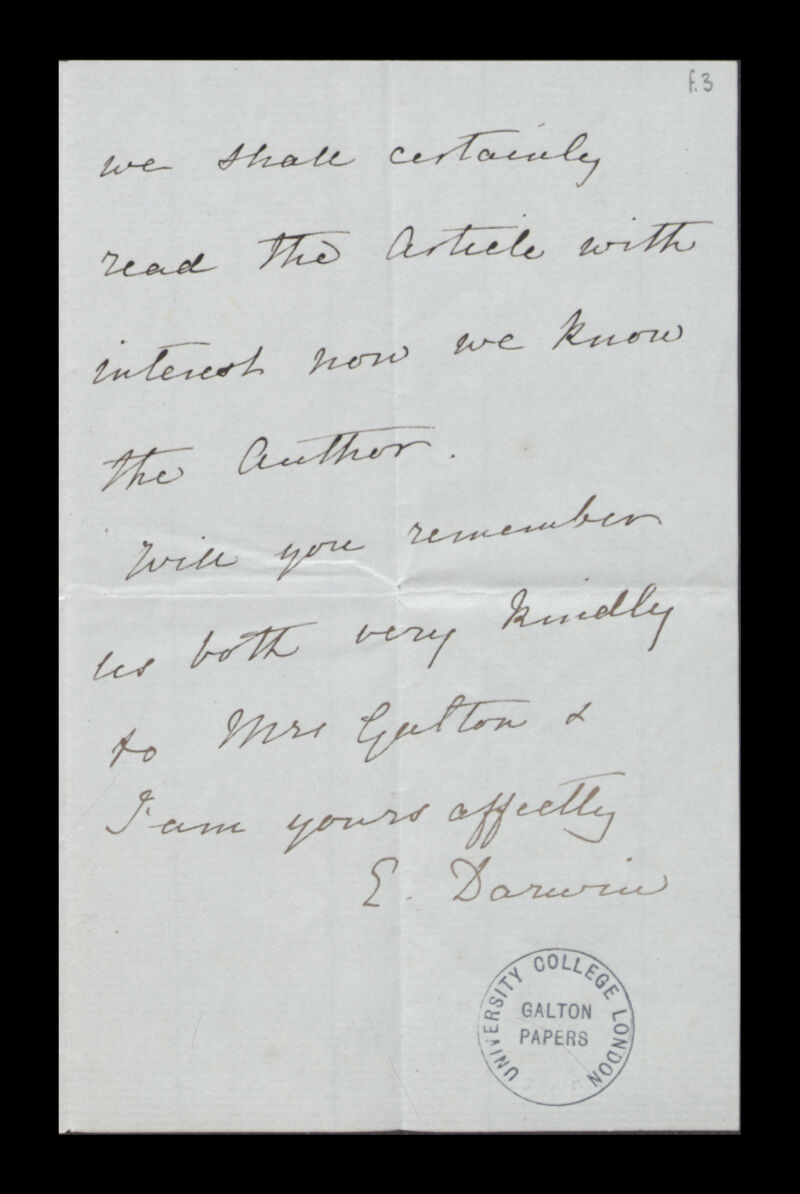 f.3
we shall certainly
read the Article with
interest now we know
the Author.
Will you remember
us both very kindly
to Mrs Galton &
I am yours affectly
E. Darwin
UNIVERSITY COLLEGE LONDON
GALTON
PAPERS